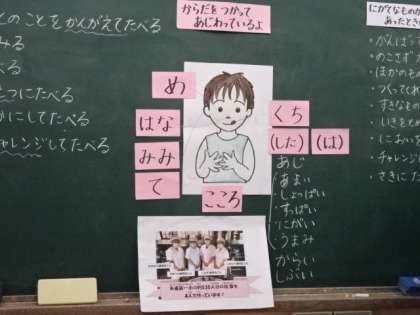 とのことをかんがえてたべる
みる
べる
とつにたべる
かにしてたべる
ャレンジしてたべる
からだをつかって
あじわっているよ
め
はな
みみ
て
こころ
くち
(した)
(は)
あじ
あまい
しょっぱい
すっぱい
にがい
うまみ
からい
しぶい
にがてなものが
あったとき
・がんば
・のこさず
・ほかの
・つくってくれ
・すきな
・いきをと
・においを
・チャレン
・さきにた